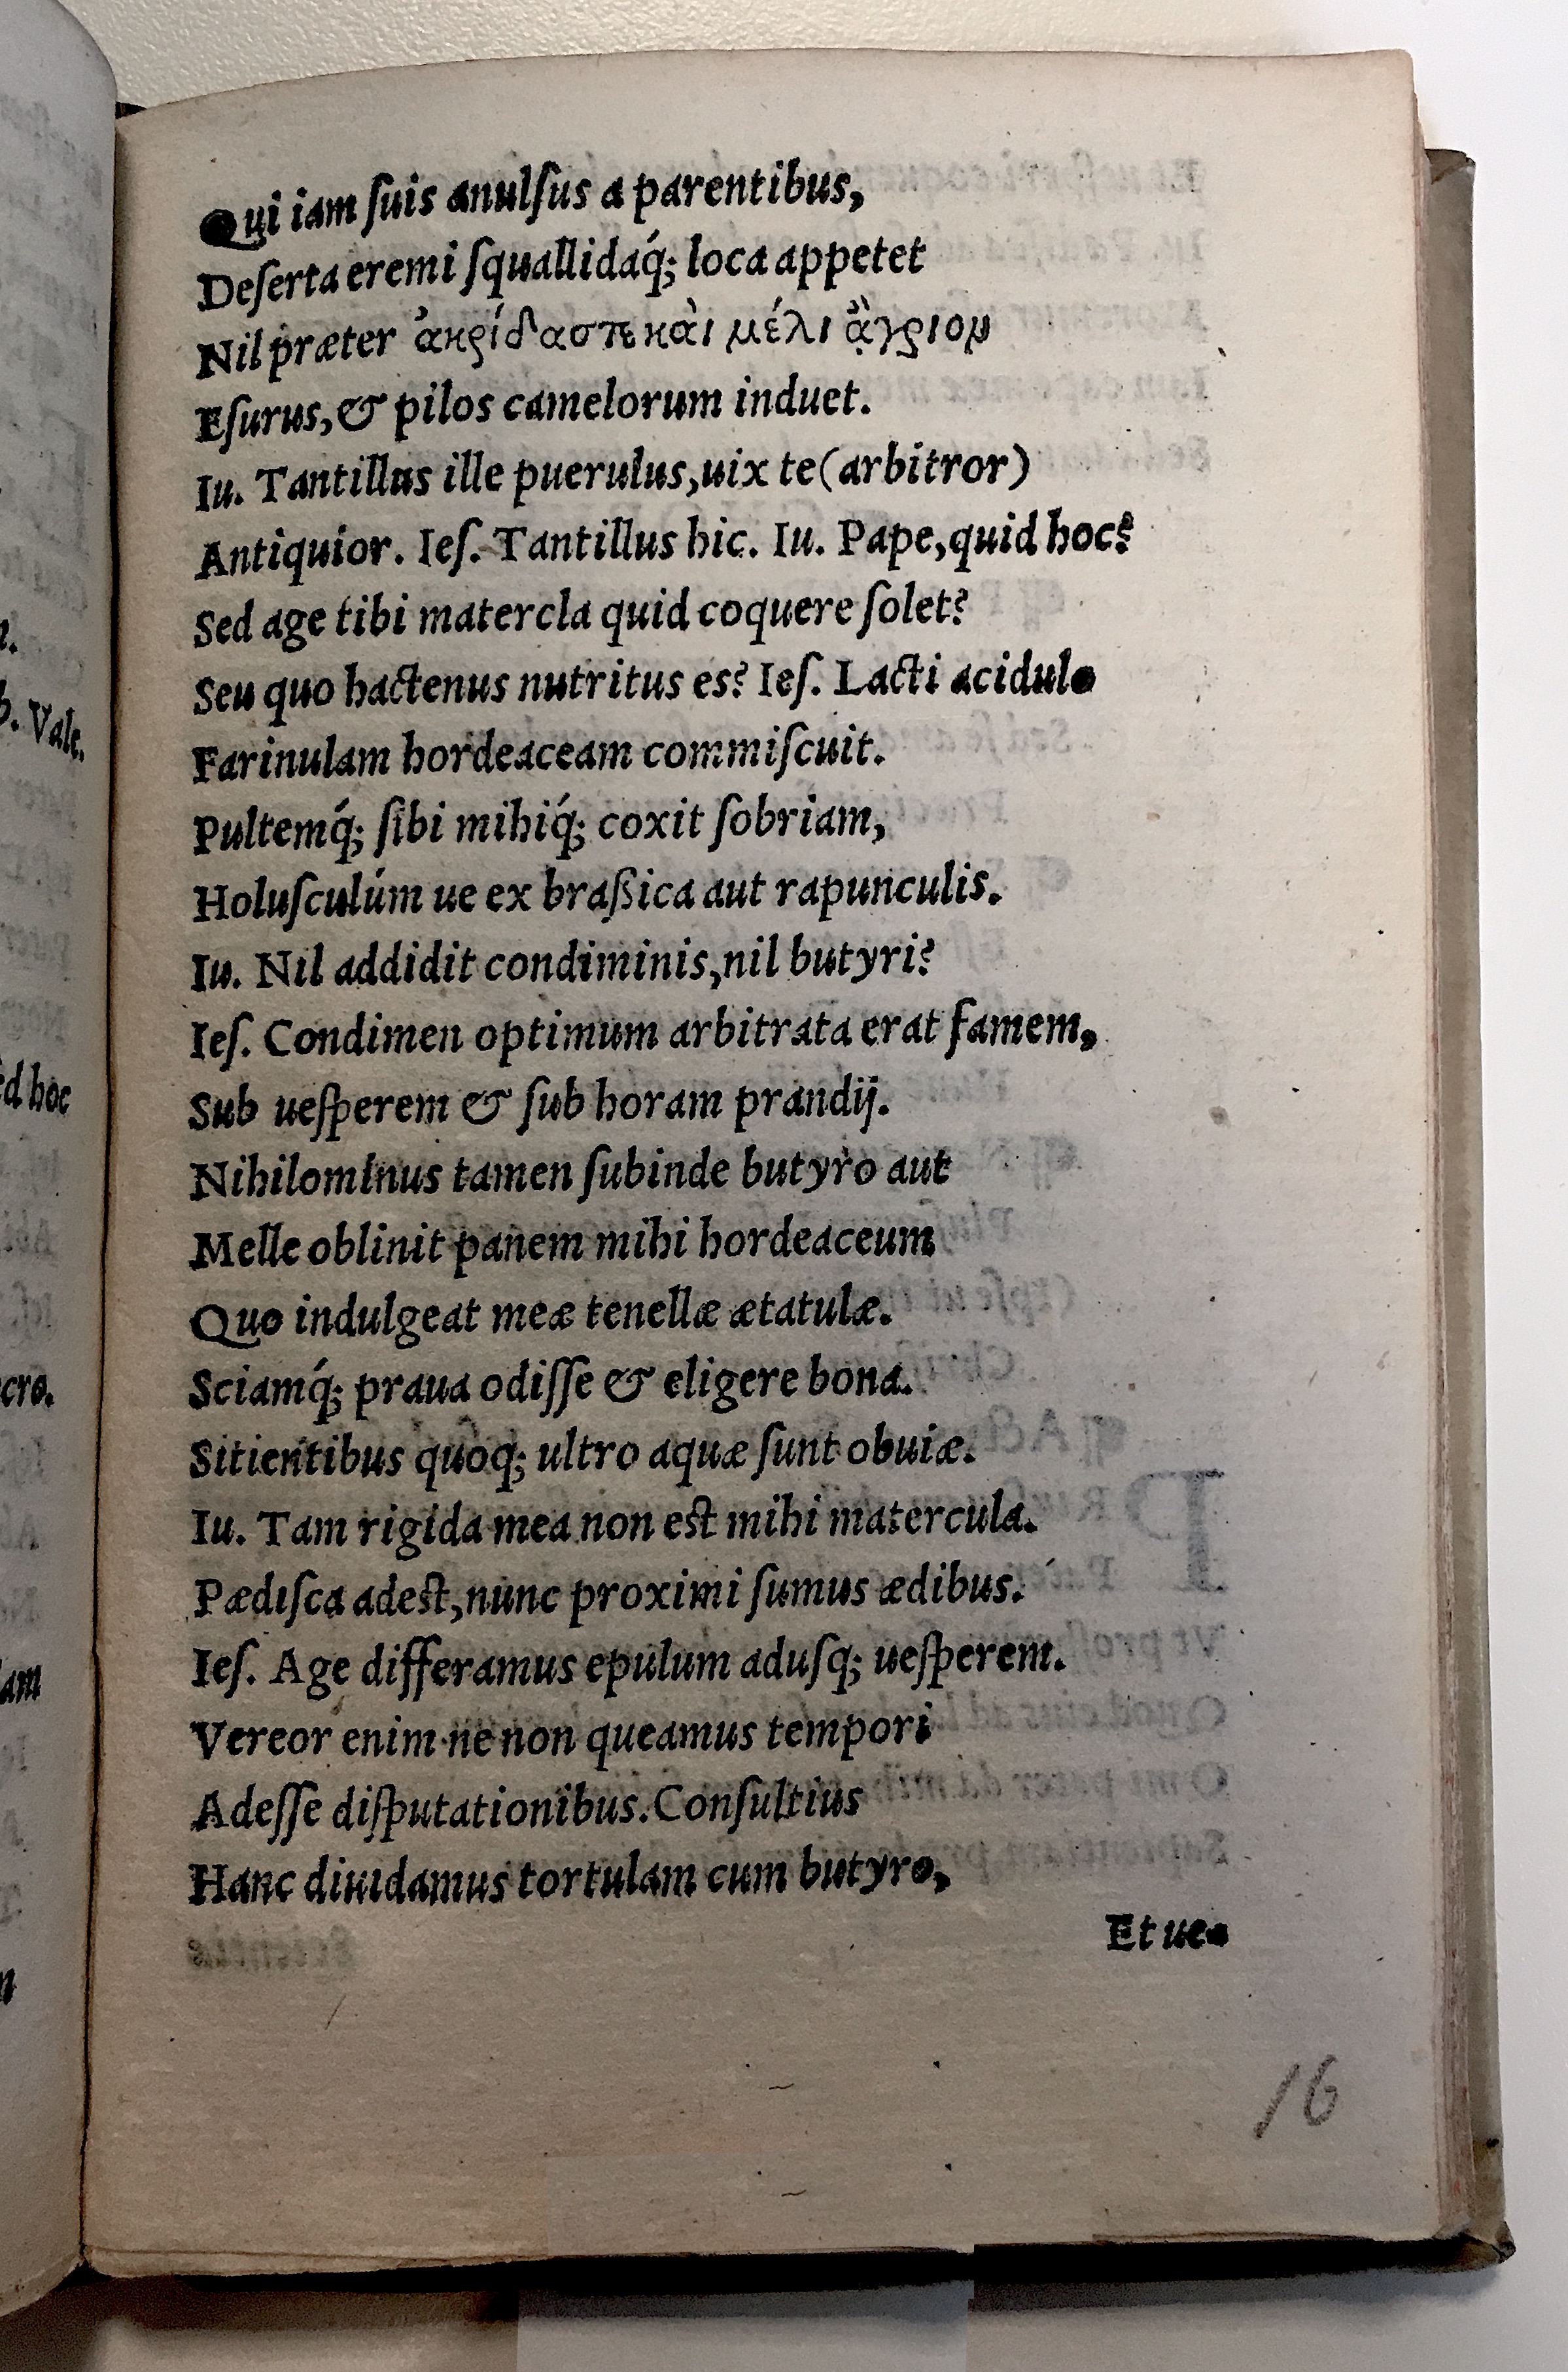 Qui iam ſuis anulſus a parentibus,
Deſerta eremi ſquallidaq́; loca appetet
Nil præter ἀκρίδαστε καὶ μέλι ἄγριον
Eſurus, & pilos camelorum induet.
Iu. Tantillus ille puerulus,uix te(arbitror)
Antiquior. Ieſ. Tantillus hic. Iu. Pape,quid hoc?
Sed age tibi matercla quid coquere ſolet?
Seu quo hactenus nutritus es? Ieſ. Lacti acidulo
Farinulam hordeaceam commiſcuit.
Pultemq́; ſibi mihiq́; coxit ſobriam,
Holuſculúm ue ex braßica aut rapunculis.
Iu. Nil addidit condiminis,nil butyri?
Ieſ. Condimen optimum arbitrata erat famem,
Sub ueſperem & ſub horam prandij.
Nihilominus tamen ſubinde butyro aut
Melle oblinit panem mihi hordeaceum
Quo indulgeat meæ tenellæ ætatulæ.
Sciamq́; praua odiſſe & eligere bona.
Sitientibus quoq; ultro aquæ ſunt obuiæ.
Iu. Tam rigida mea non est mihi matercula.
Pædiſca adest,nunc proximi ſumus ædibus.
Ieſ. Age differamus epulum aduſq; ueſperem.
Vereor enim ne non queamus tempori
Adeſſe diſputationibus.Conſultius
Hanc diuidamus tortulam cum butyro,
Et ue-
16
Vale.
ed hoc
cro.